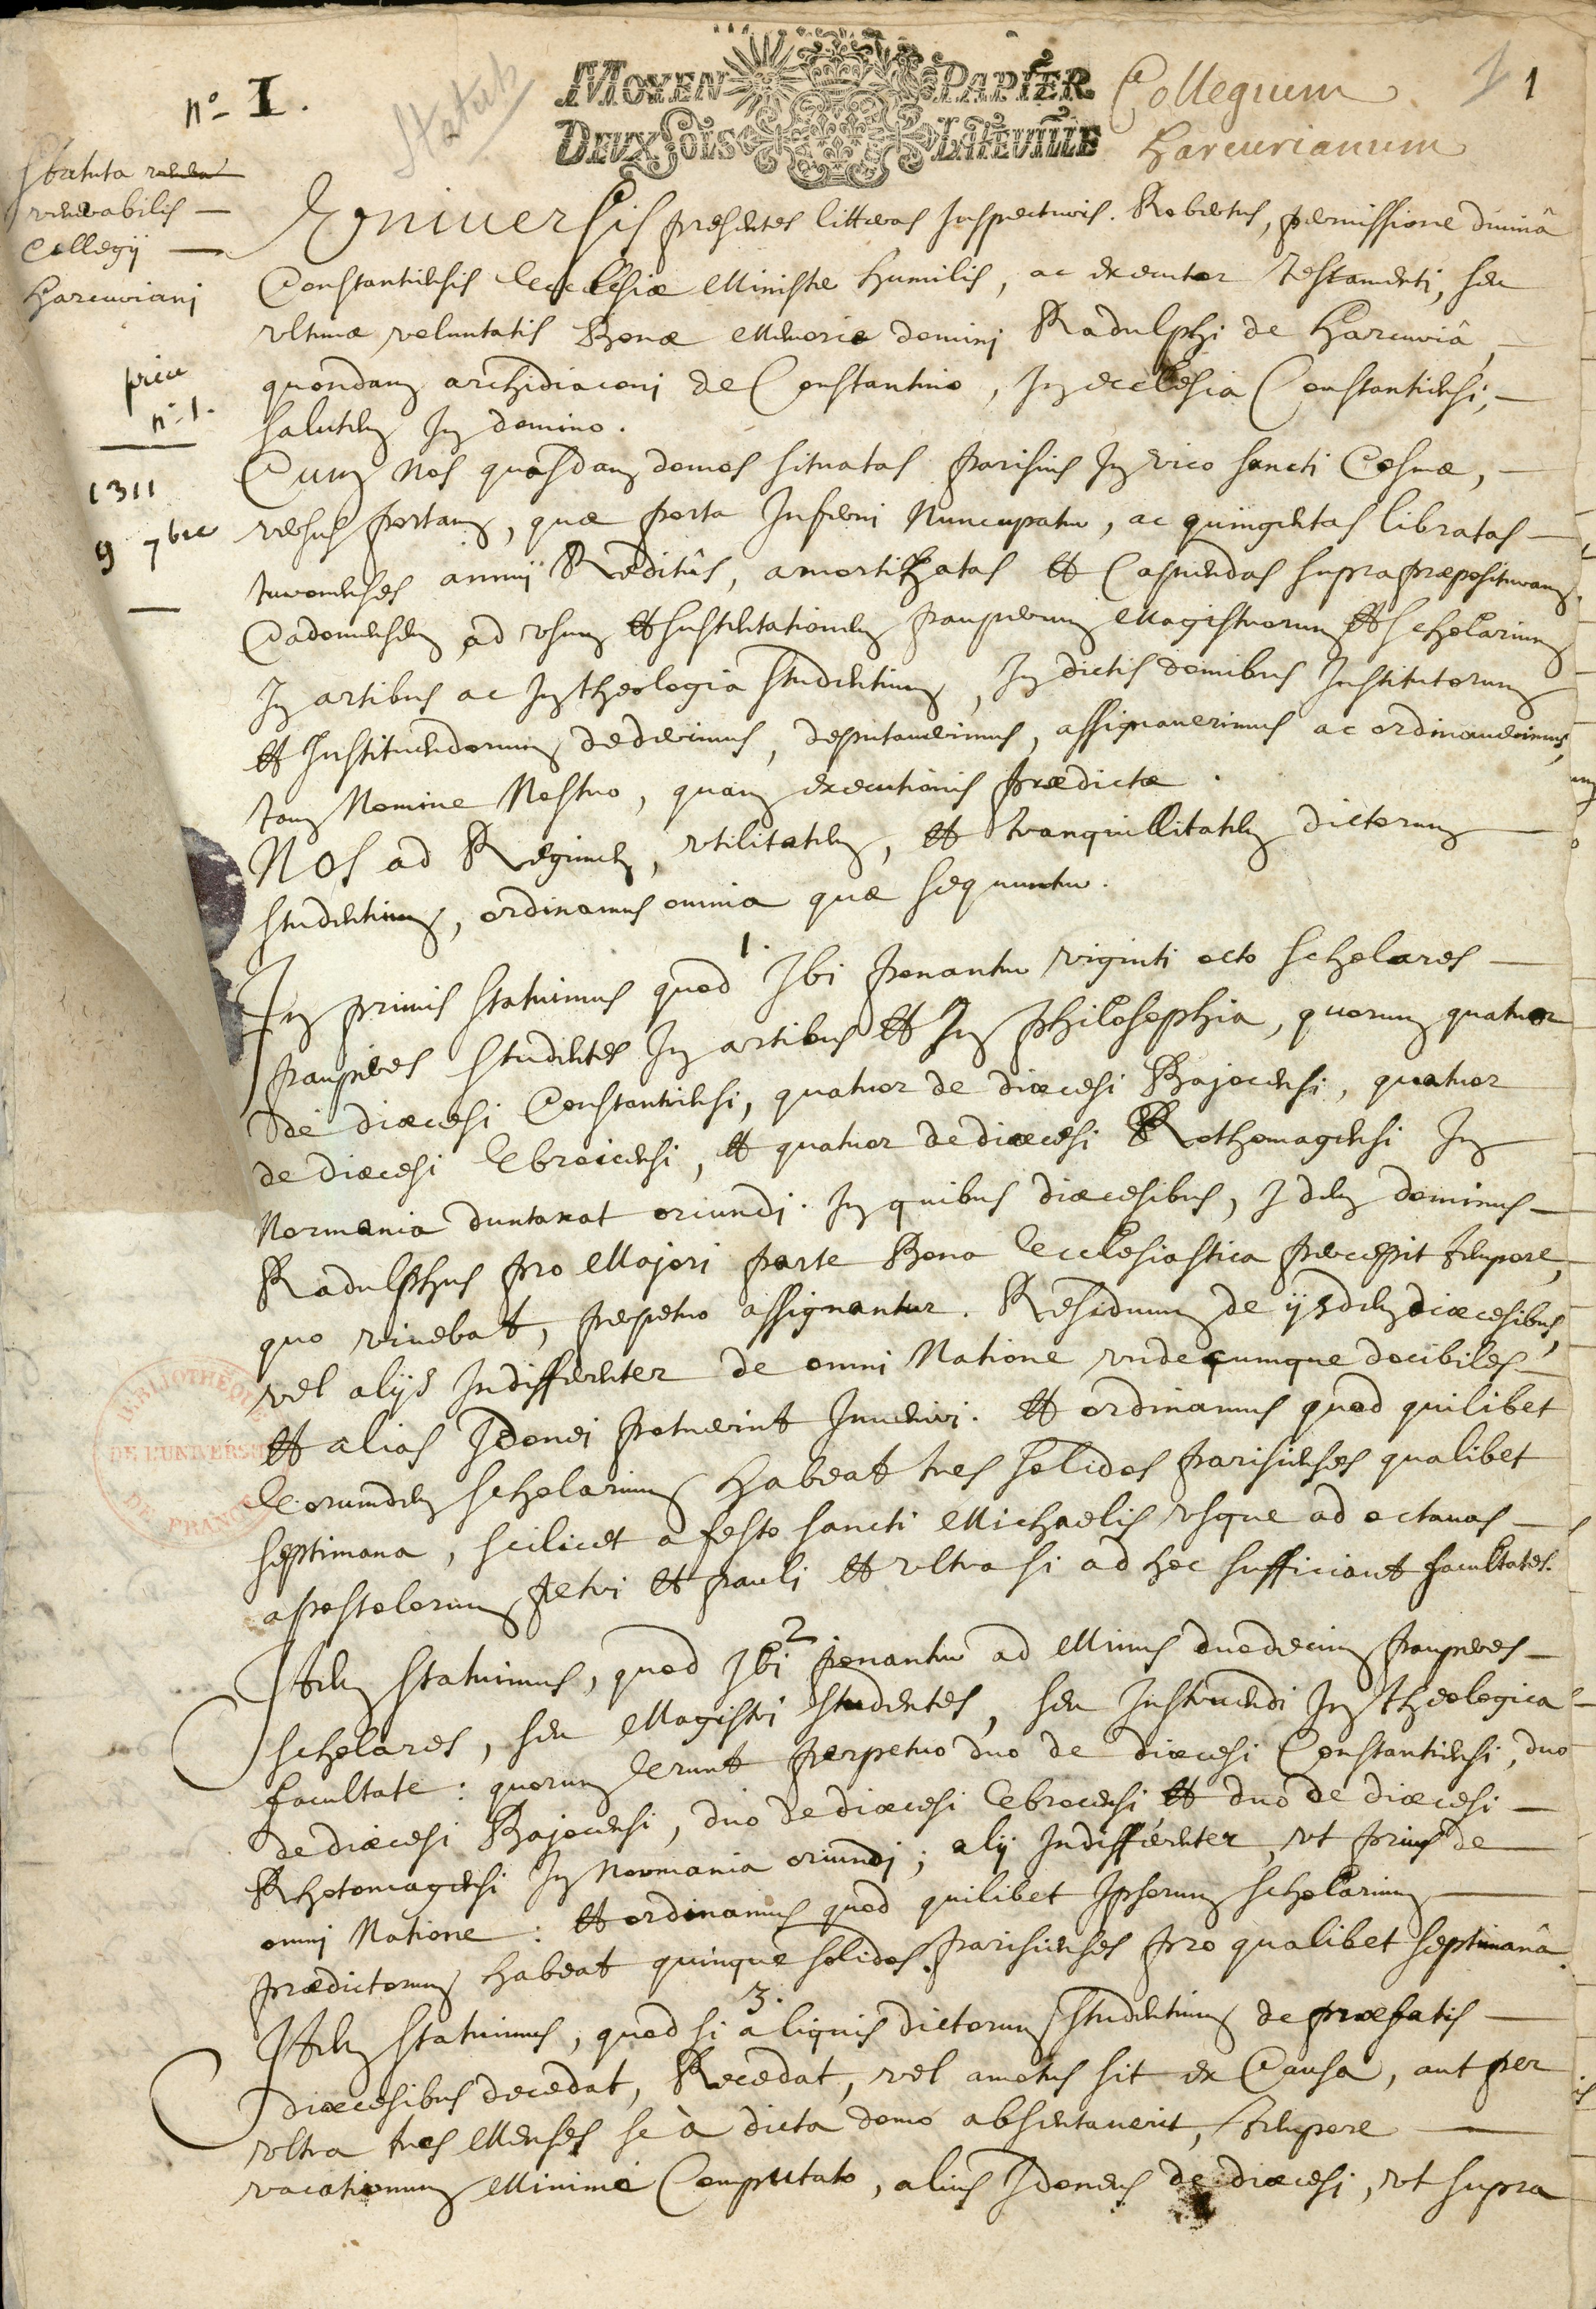 n° I.
Statuts
MOYEN PAPIER
DEUX SOLS LA FEUILLE
Collegium
Harcurianum
1
Statuta
venerabilis
Collegij
Harcuriani
n° 1.
1311
9 7bre
Universis presentes litteras Inspecturis. Robertus, permissione divinâ
Constantiensis Ecclesiæ Minister humilis, ac executor testamenti, seu
ultimæ voluntatis Bonæ Memoriæ domini Radulphi de Harcuriâ,
quondam archidiaconi de Constantino, In ecclesia Constantiensi,
salutem In domino.
Cum Nos quasdam domos situatas parisius In vico sancti Cosmæ,
versus portam, quæ porta Inferni Nuncupatur, ac quingentas libratas
turonenses annui Reditûs, amortizatas et Capiendas supra præposituram
Cadomensem ad usum et sustentationem pauperum Magistrorum et scholarium
In artibus ac In theologia studentium, In dictis domibus Institutorum
et Instituendorum dederimus, deputaverimus, assignaverimus ac ordinaverimus,
tam Nomine Nostro, quam executionis prædictæ.
NOS ad Regimen, utilitatem, et tranquillitatem dictorum
studentium, ordinamus omnia quæ sequuntur.
1.
In primis statuimus quod Ibi ponantur viginti octo scholares
pauperes studentes In artibus et In philosophia, quorum quatuor
de diœcesi Constantiensi, quatuor de diœcesi Bajocensi, quatuor
de diœcesi Ebroicensi, et quatuor de diœcesi Rothomagensi In
Normania duntaxat oriundi. In quibus diœcesibus, Idem dominus
Radulphus pro Majori parte Bona Ecclesiastica percepit tempore,
quo vivebat, perpetuo assignantur. Residuum de ijsdem diœcesibus,
vel alijs Indifferenter de omni Natione undecumque docibiles
et alias Idonei potuerint Inveniri. et ordinamus quod quilibet
Eorumdem scholarium habeat tres solidos parisienses qualibet
septimana, scilicet a festo sancti Michaelis usque ad octavas
apostolorum petri et pauli et ultra si ad hoc sufficiant facultates.
2
Item statuimus, quod Ibi ponantur ad Minus duodecim pauperes
scholares, seu Magistri studentes, seu Instruendi In theologica
facultate: quorum Erunt perpetuo duo de diœcesi Constantiensi, duo
de diœcesi Bajocensi, duo de diœcesi Ebrocensi et duo de diœcesi
Rhotomagensi In Normania oriundi; alij Indifférenter, ut prius de
omni Natione: et ordinamus quod quilibet Ipsorum scholarium
prædictorum habeat quinque solidos parisienses pro qualibet septimanâ.
3.
Item statuimus, quod si aliquis dictorum studentium de præfatis
diœcesibus decedat, Recedat, vel amotus sit ex Causa, aut per
ultra tres Menses se à dicta domo absentaverit, tempore
vacationum Minimè Computato, alius Idoneus de diœcesi, ut supra
BIBLIOTHÈQUE
DE L'UNIVERSITÉ
DE FRANCE